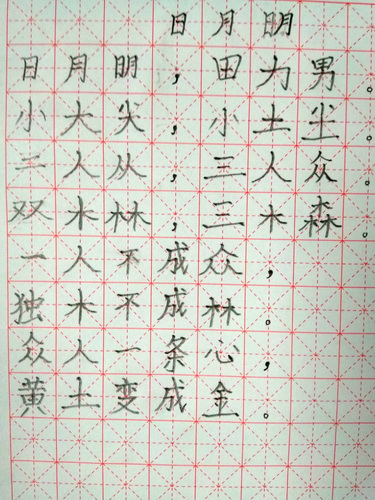 日月明
日月明，田力男。
小大尖，小土尘。
二人从，三人众。
双木林，三木森。
一人不成众，
独木不成林。
众人一条心，
黄土变成金。